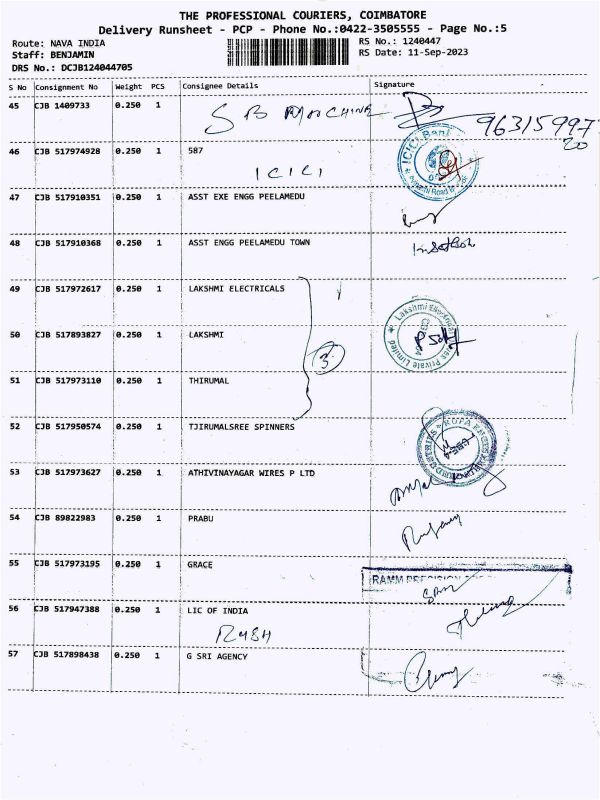 THE PROFESSIONAL COURIERS, COIMBATORE
Delivery Runsheet - PCP - Phone No.:0422-3505555 - Page No.:5
Route: NAVA INDIA
RS No.: 1240447
Staff: BENJAMIN
RS Date: 11-Sep-2023
DRS No.: DCJB124044705
S No Consignment No Weight PCS Consignee Details Signature
45 CJB 1409733 0.250 1
S B MACHINE
9631599720
46 CJB 517974928 0.250 1 587
ICICI
ICICI Bank
47 CJB 517910351 0.250 1 ASST EXE ENGG PEELAMEDU
48 CJB 517910368 0.250 1 ASST ENGG PEELAMEDU TOWN
49 CJB 517972617 0.250 1 LAKSHMI ELECTRICALS
50 CJB 517893827 0.250 1 LAKSHMI
3
51 CJB 517973110 0.250 1 THIRUMAL
52 CJB 517950574 0.250 1 TJIRUMALSREE SPINNERS
53 CJB 517973627 0.250 1 ATHIVINAYAGAR WIRES P LTD
54 CJB 89822983 0.250 1 PRABU
55 CJB 517973195 0.250 1 GRACE
RAMM PRECISION
56 CJB 517947388 0.250 1 LIC OF INDIA
RUSH
57 CJB 517898438 0.250 1 G SRI AGENCY